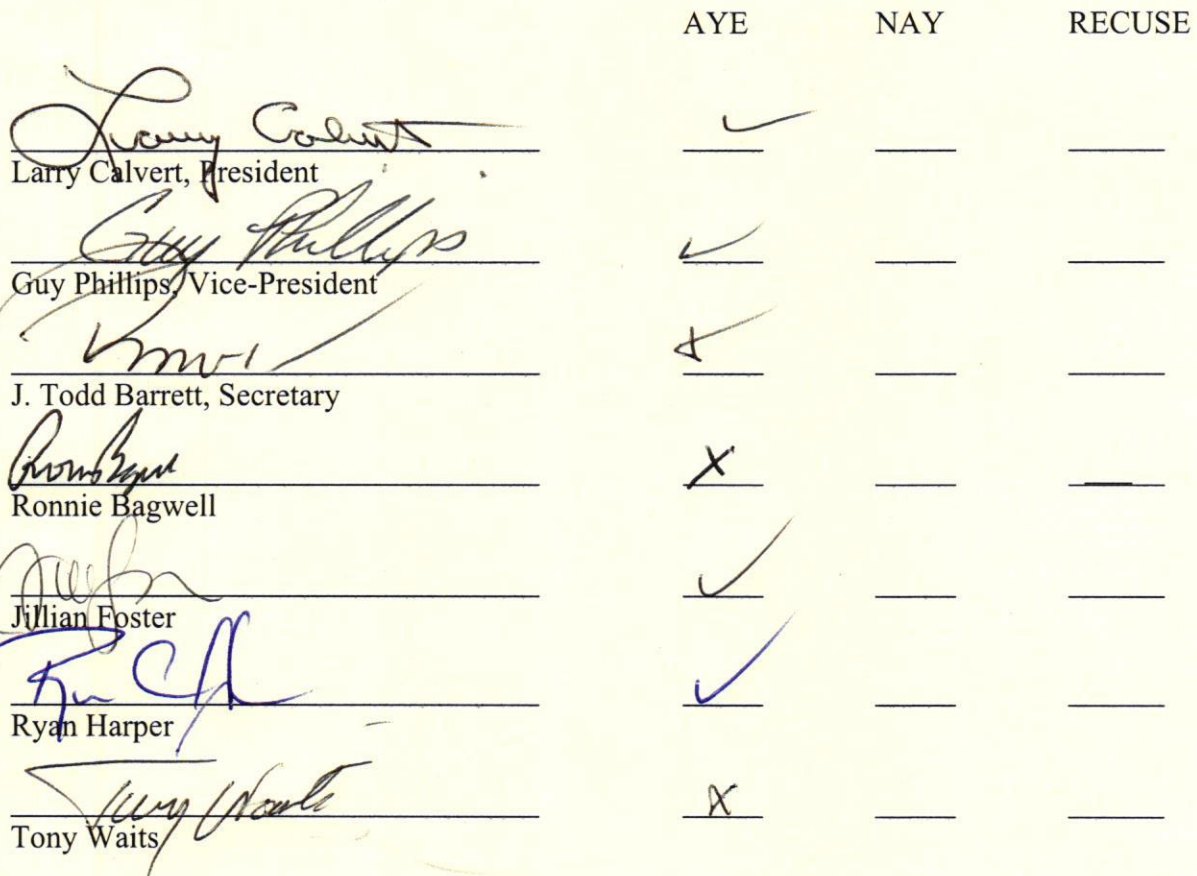 AYE NAY RECUSE
Larry Calvert ✓
Larry Calvert, President
Guy Phillips ✓
Guy Phillips, Vice-President
J. Todd Barrett, Secretary
X
Ronnie Bagwell
✓
Jillian Foster
✓
Ryan Harper
Tony Waits X
Tony Waits